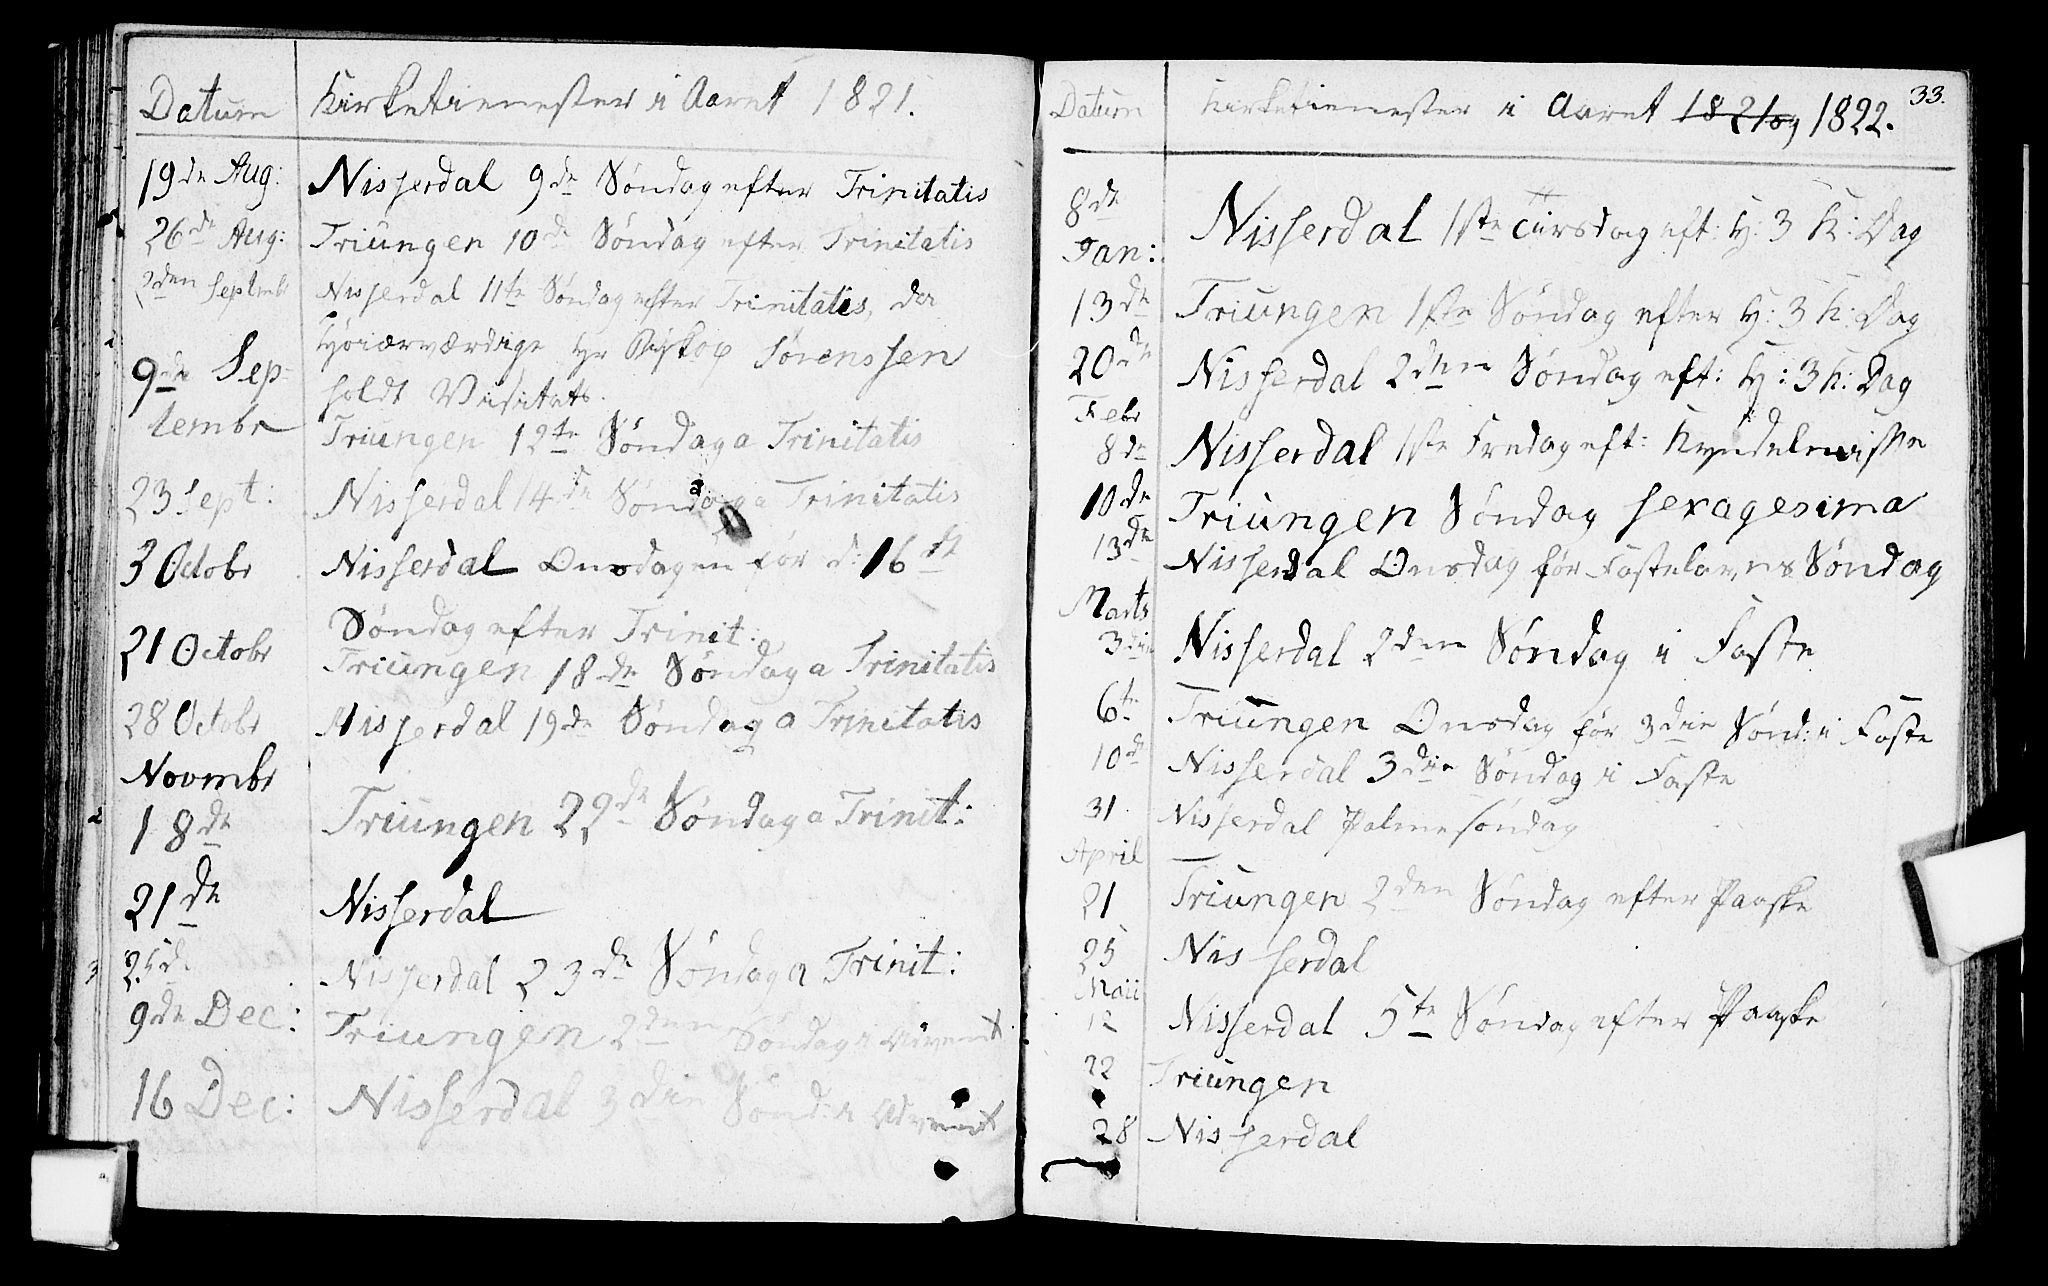 Datum Kirketienester i Aaret 1821.
19de Aug: Nisserdal 9de Søndag efter Trinitatis
26de Aug: Triungen 10de Søndag efter Trinitatis
2den Septembr Nisserdal 11te Søndag efter Trinitatis, da
Høiærværdige Hr Biskop Sørenssen
holdt Visitats.
9de Sep=
tembr Triungen 12te Søndag a Trinitatis
23 Sept: Nisserdal 14de Søndag a Trinitatis
3 Octobr Nisserdal Onsdagen før d: 16de
Søndag efter Trinit:
21 Octobr Triungen 18de Søndag a Trinitatis
28 Octobr Nisserdal 19de Søndag a Trinitatis
Novmbr
18de Triungen 22de Søndag a Trinit:
21de Nisserdal
25d. Nisserdal 23de Søndag a Trinit:
9de Dec: Triungen 2den Søndag i Advent
16 Dec: Nisserdal 3die Sønd: i Advent
33.
Datum Kirketienester i Aaret 1821 og 1822.
8de
Jan: Nisserdal 1ste Tirsdag eft: H: 3 K: Dag
13de Triungen 1ste Søndag efter H: 3 K: Dag
20de Nisserdal 2den Søndag eft: H: 3 K: Dag
Febr
8de Nisserdal 1ste Fredag eft: Kyndelmisse
10de Triungen Søndag Sexagesima
13de Nisserdal Onsdag før Fastelavns Søndag
Marts
3die Nisserdal 2den Søndag i Faste
6te Triungen Onsdag før 3die Sønd: i Faste
10de Nisserdal 3die Søndag i Faste
31 Nisserdal Palmesøndag
April
21 Triungen 2den Søndag efter Paaske
25 Nisserdal
Maii
12 Nisserdal 5te Søndag efter Paaske
22 Triungen
28 Nisserdal